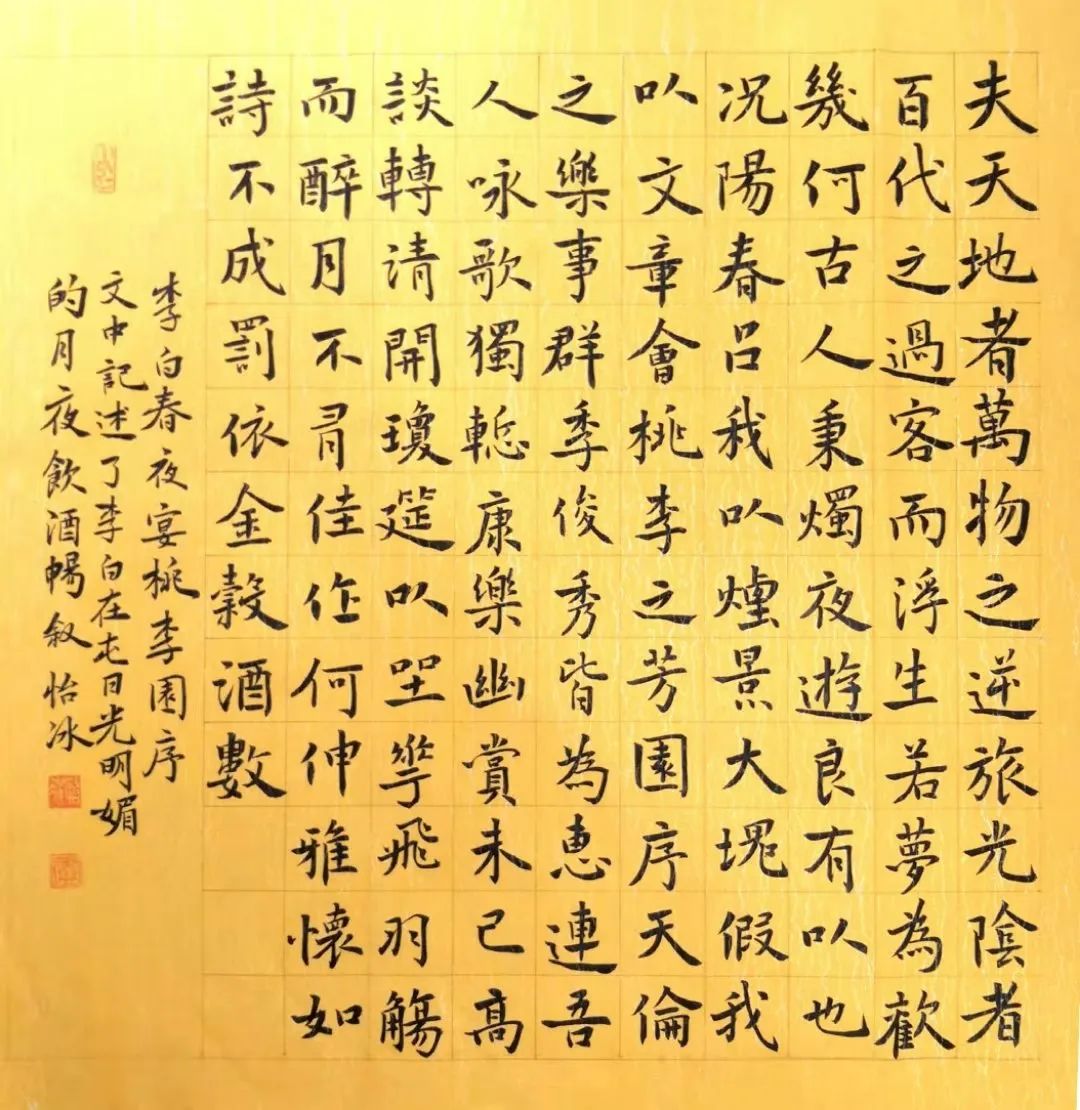 夫天地者萬物之逆旅光陰者
百代之過客而浮生若夢為歡
幾何古人秉燭夜遊良有以也
况陽春召我以煙景大塊假我
以文章會桃李之芳園序天倫
之樂事群季俊秀皆為惠連吾
人咏歌獨慙康樂幽賞未已高
談轉清開瓊筵以坐華飛羽觴
而醉月不有佳作何伸雅懷如
詩不成罰依金穀酒數
李白春夜宴桃李園序
文中記述了李白在日光明媚
的月夜飲酒暢叙怡冰